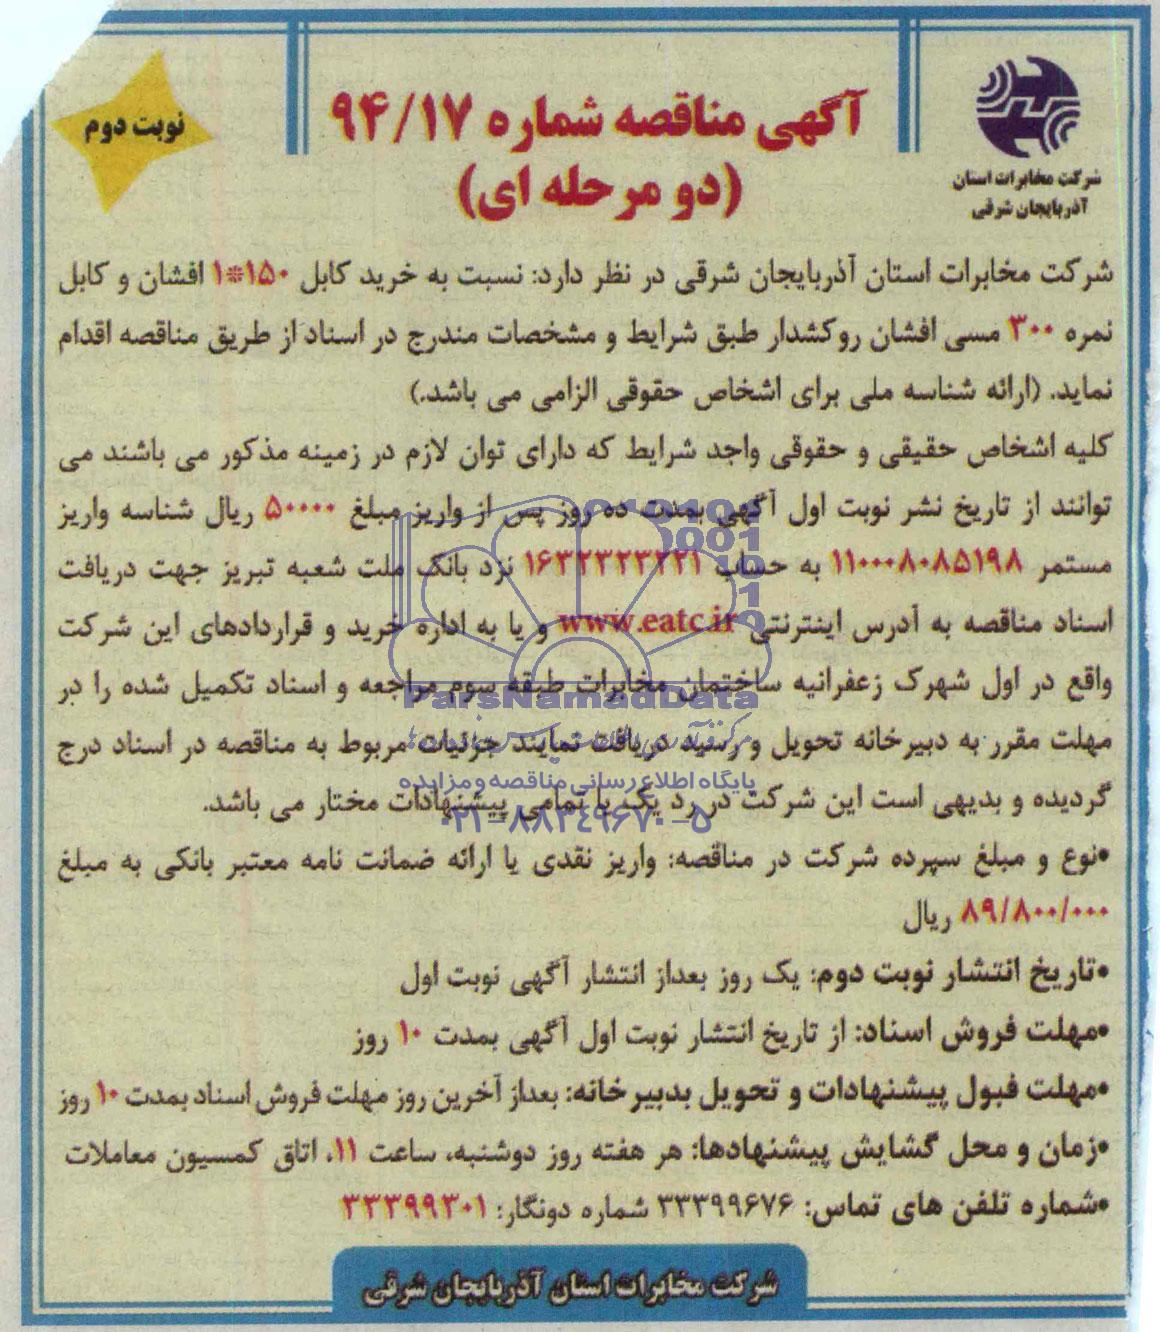 شرکت مخابرات استان
آذربایجان شرقی
نوبت دوم
آگهی مناقصه شماره ۹۴/۱۷
(دو مرحله ای)
شرکت مخابرات استان آذربایجان شرقی در نظر دارد: نسبت به خرید کابل ۱۵۰*۱ افشان و کابل
نمره ۳۰۰ مسی افشان روکشدار طبق شرایط و مشخصات مندرج در اسناد از طریق مناقصه اقدام
نماید. (ارائه شناسه ملی برای اشخاص حقوقی الزامی می باشد.)
کلیه اشخاص حقیقی و حقوقی واجد شرایط که دارای توان لازم در زمینه مذکور می باشند می
توانند از تاریخ نشر نوبت اول آگهی بمدت ده روز پس از واریز مبلغ ۵۰۰۰۰ ریال شناسه واریز
مستمر ۱۱۰۰۰۸۰۸۵۱۹۸ به حساب ۱۶۳۲۳۲۳۲۳۱ نزد بانک ملت شعبه تبریز جهت دریافت
اسناد مناقصه به آدرس اینترنتی www.eatc.ir و یا به اداره خرید و قراردادهای این شرکت
واقع در اول شهرک زعفرانیه ساختمان مخابرات طبقه سوم مراجعه و اسناد تکمیل شده را در
ParsNamadData
مهلت مقرر به دبیرخانه تحویل و رسید دریافت نمایند جزئیات مربوط به مناقصه در اسناد درج
پایگاه اطلاع رسانی مناقصه و مزایده
گردیده و بدیهی است این شرکت در رد یک یا تمامی پیشنهادات مختار می باشد.
۰۲۱-۸۸۳۴۹۶۷۰-۵
•نوع و مبلغ سپرده شرکت در مناقصه: واریز نقدی یا ارائه ضمانت نامه معتبر بانکی به مبلغ
۸۹/۸۰۰/۰۰۰ ریال
•تاریخ انتشار نوبت دوم: یک روز بعداز انتشار آگهی نوبت اول
•مهلت فروش اسناد: از تاریخ انتشار نوبت اول آگهی بمدت ۱۰ روز
•مهلت قبول پیشنهادات و تحویل بدبیرخانه: بعداز آخرین روز مهلت فروش اسناد بمدت ۱۰ روز
•زمان و محل گشایش پیشنهادها: هر هفته روز دوشنبه، ساعت ۱۱، اتاق کمسیون معاملات
•شماره تلفن های تماس: ۳۳۳۹۹۶۷۶ شماره دونگار: ۳۳۳۹۹۳۰۱
شرکت مخابرات استان آذربایجان شرقی